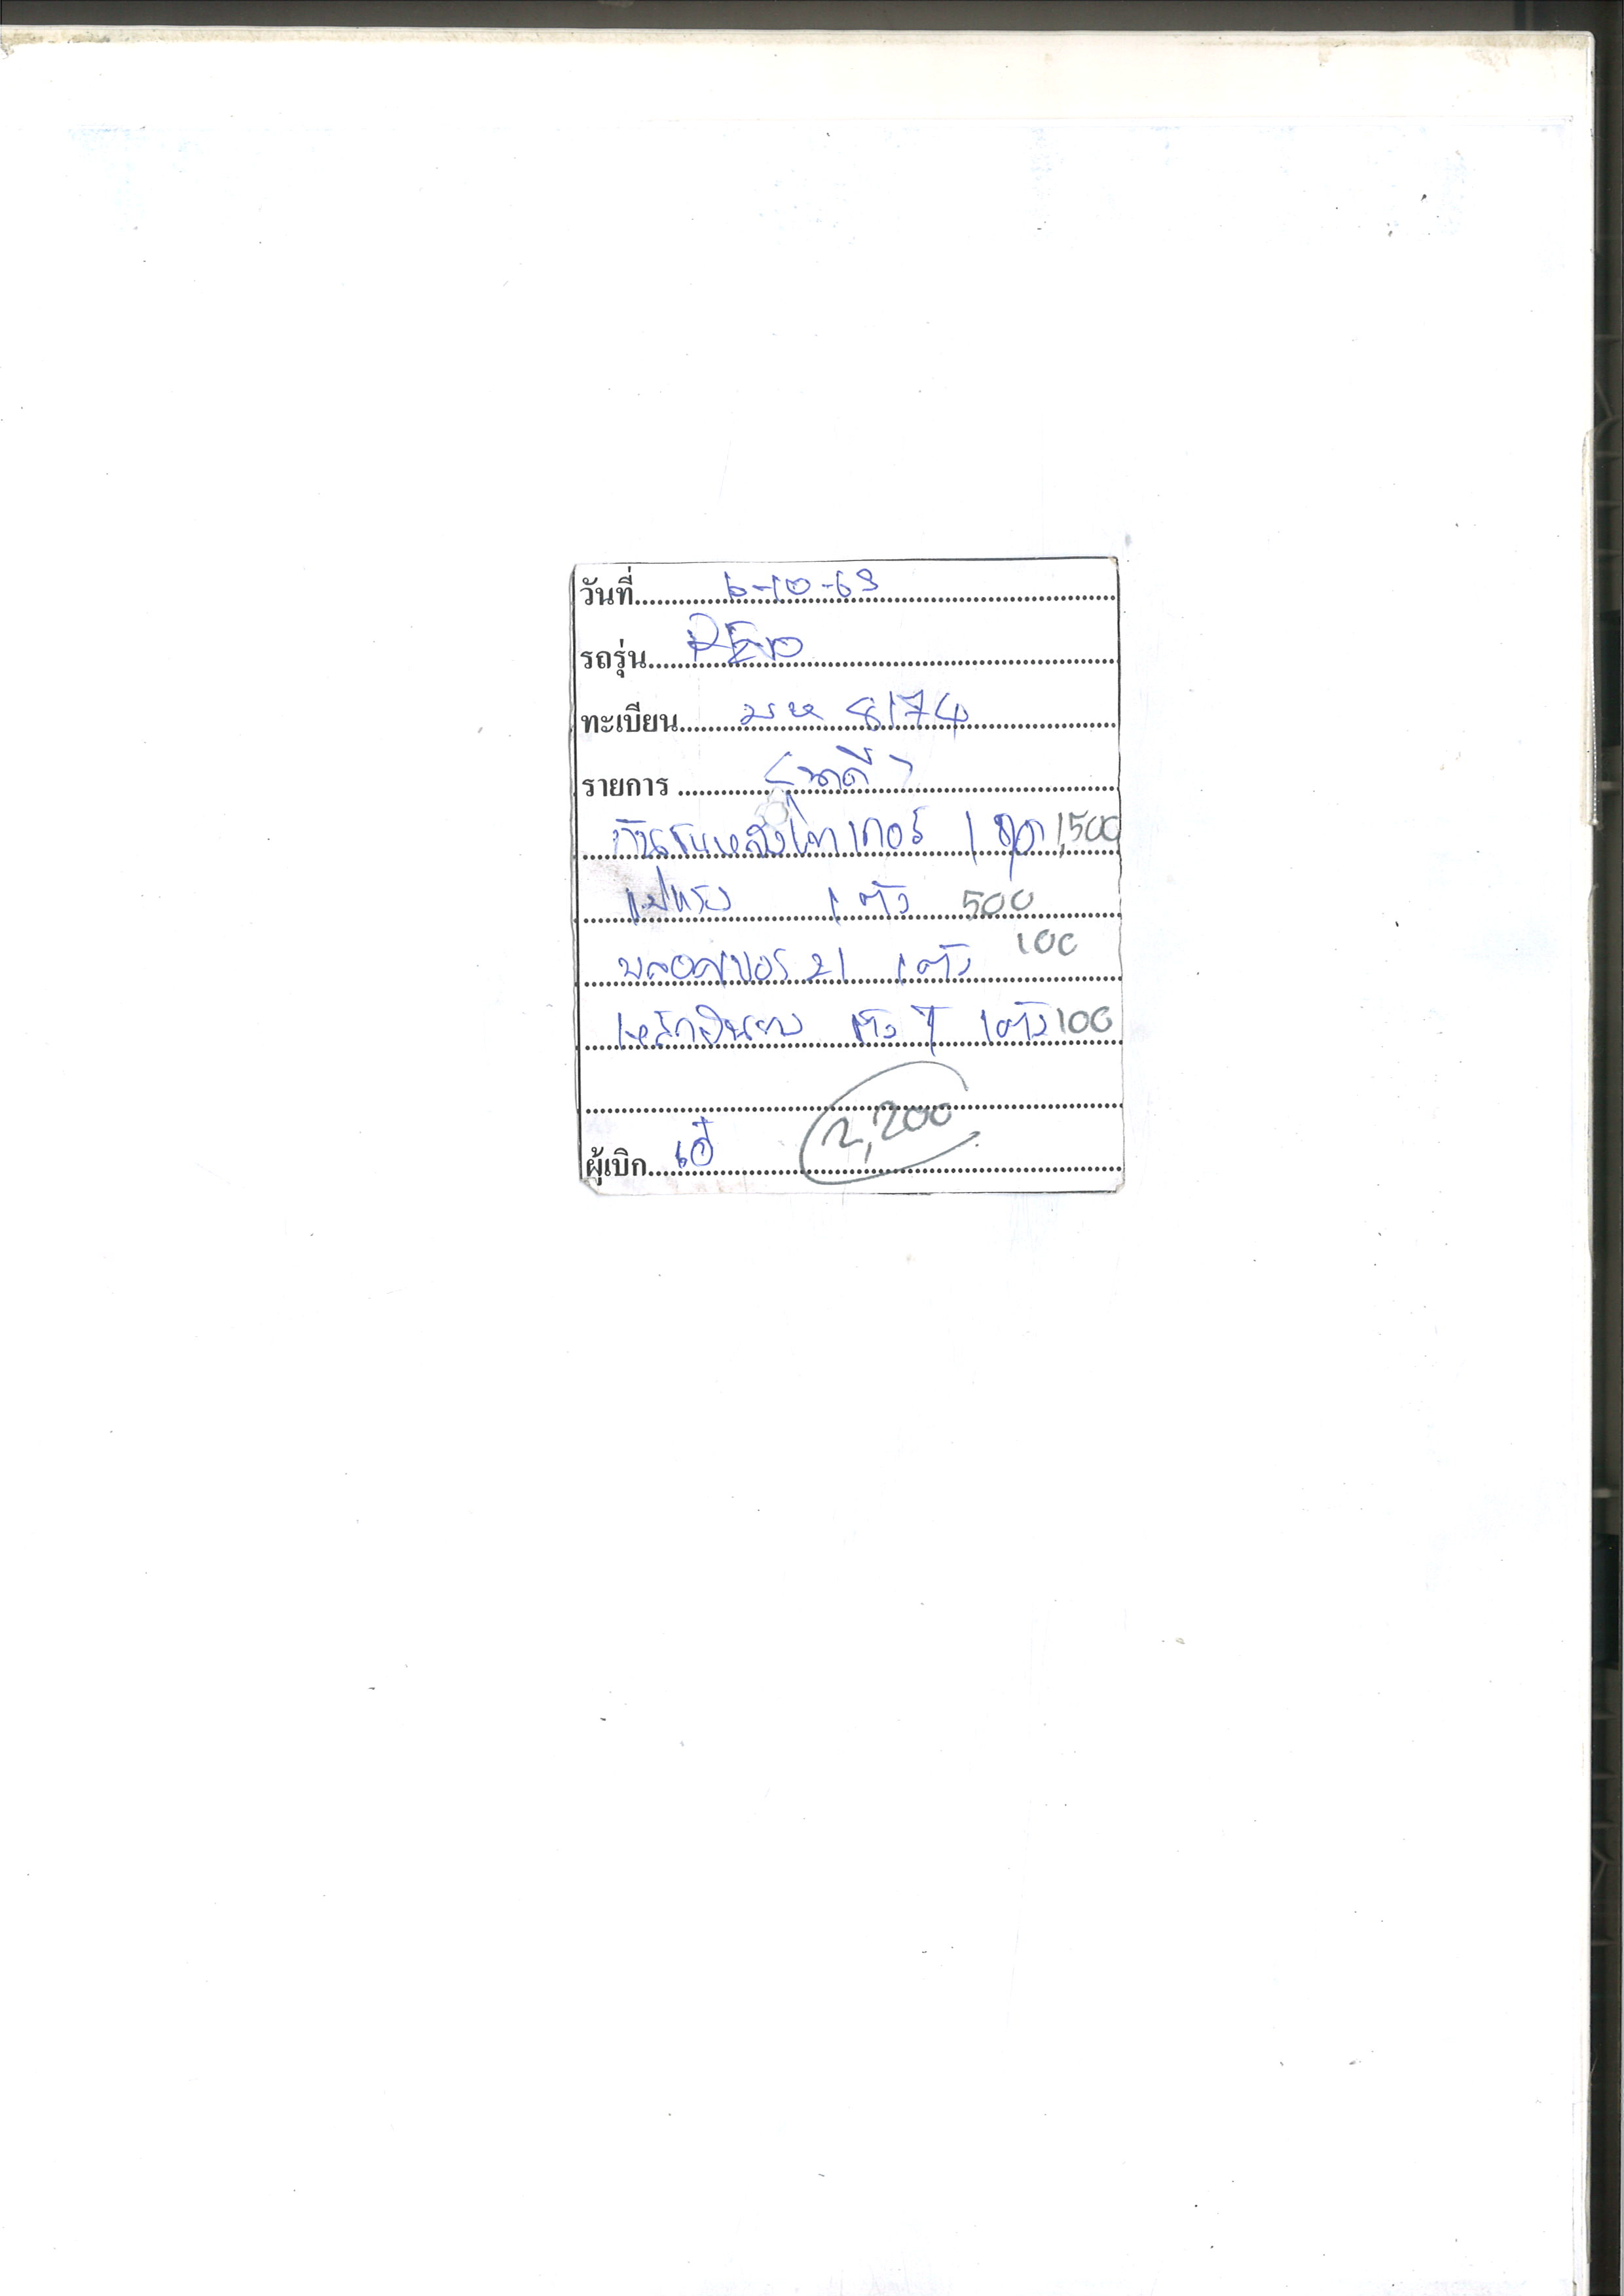 วันที่ 6-10-63
รถรุ่น REVO
ทะเบียน มห 8174
รายการ
กันชนหลัง 1 ชุด 1,500
แม่แรง 1 ตัว 500
บลอคเบอร์ 21 1 ตัว 100
เหล็กขันยาง ตัว T 1 ตัว 100
2,200
ผู้เบิก เอ๋